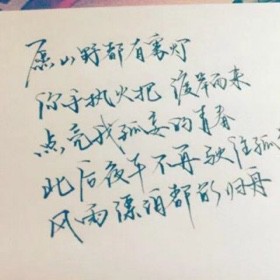 愿山野都有雾灯
你手执火把 渡岸而来
点亮我孤妄的青春
此后夜车不再驶往孤
风雨漂泊都能归舟